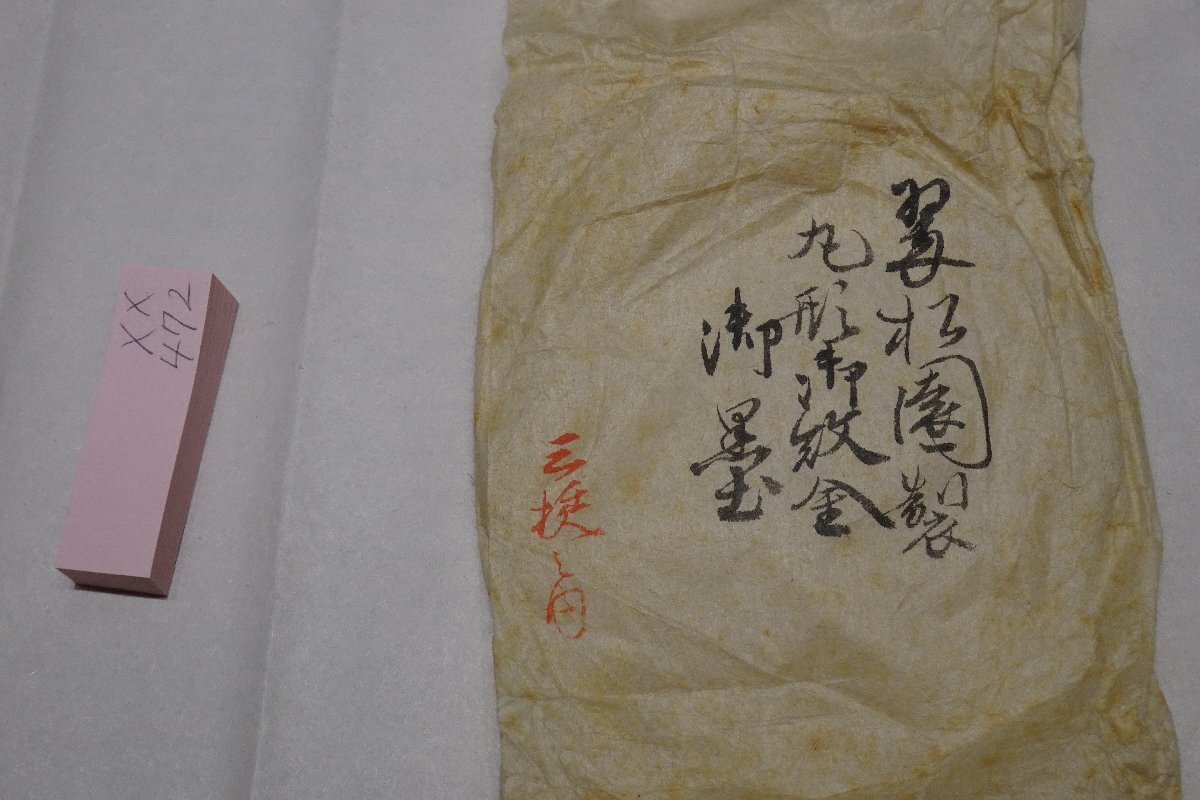 翠松園製
丸形御紋金
御墨
三挺之内
XX
472